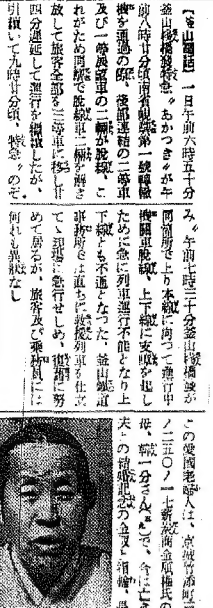 【釜山電話】一日午前六時五十分
釜山棧橋發特急〝あかつき〟が午
前八時廿分頃南省峴驛第一號轉轍
機を通過の際、後部連結の二等車
及び一等展望車の二輛が脫線、こ
れがため同驛で脫線車二輛を解き
放して旅客全部を三等車に移し廿
四分遲延して運行を繼續したが、
引續いて九時廿分頃、特急〝のぞ
み〟午前七時三十分釜山棧橋發が
同箇所で上り本線に向つて進行中
機關車脫線、上下線に支障を起し
ために急に列車運行不能となり上
下線とも不通となつた、釜山鐵道
事務所では直ちに救援列車を仕立
てゝ現場に急行せしめ、復舊に努
めて居るが、旅客及び乘務員には
何れも異狀なし
この愛國老婦人は、京城竹添町一
ノ二五〇ノ一七新 商金 權氏の
母、 一分さん で、今は亡き
夫との結婚記念の金釵と指輪、